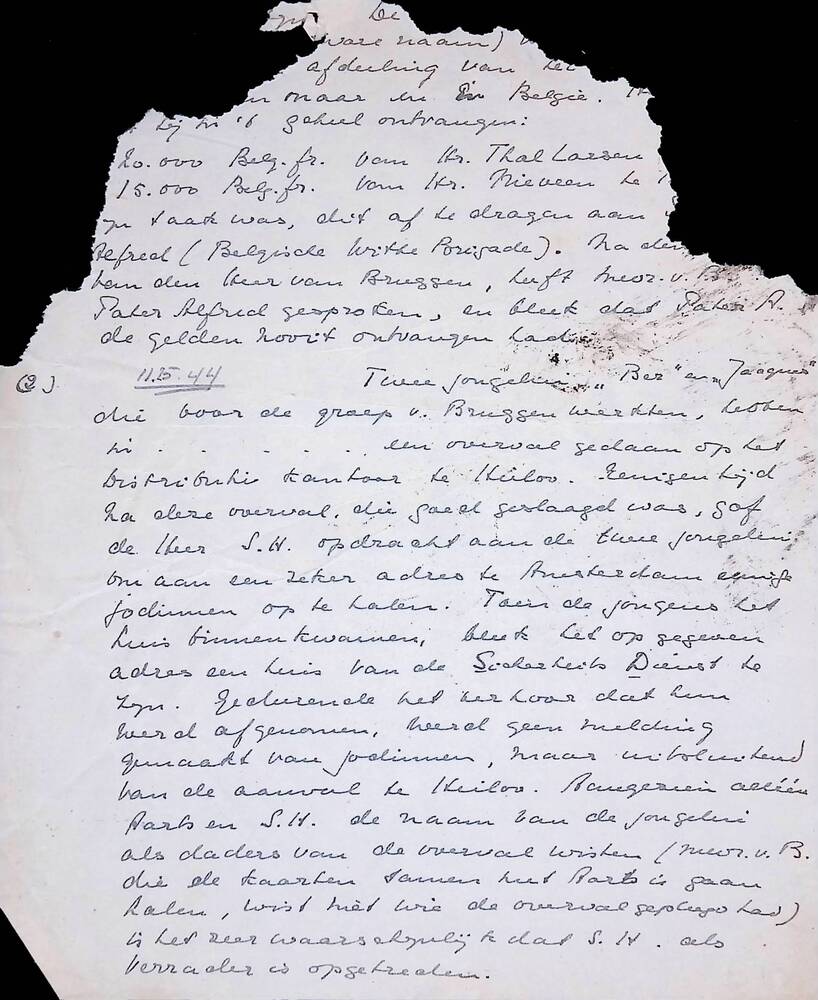 De
ware naam)
afdeeling van het
onaar en in Belgie.
hij in 't geheel ontvangen:
20.000 Belg.fr. van Hr. Thal Larsen
15.000 Belg.fr. van Hr. Nieveen te
zyn taak was, dit af te dragen aan
Alfred (Belgische Witte Brigade). Na den
van den Heer van Bruggen, heeft Mevr. v. B
Pater Alfred gesproken, en bleek dat Pater A.
de gelden nooit ontvangen had.
(2) 11.5.44 Twee jongelui, "Ber" en "Jacques"
die voor de groep v. Bruggen werkten, hebben
in . . . . . . een overval gedaan op het
Distributie kantoor te Heiloo. Eenigen tijd
na deze overval, die goed geslaagd was, gaf
de Heer S.H. opdracht aan de twee jongelui
om aan een zeker adres te Amsterdam eenige
jodinnen op te halen. Toen de jongens het
huis binnenkwamen, bleek het op gegeven
adres een huis van de Sicherheits Dienst te
zyn. Gedurende het verhoor dat hun
werd afgenomen, werd geen melding
gemaakt van jodinnen, maar uitsluitend
van de aanval te Heiloo. Aangezien alléén
Aarts en S.H. de naam van de jongelui
als daders van de overval wisten (Mevr. v. B.
die de kaarten samen met Aarts is gaan
halen, wist niet wie de overval gepleegd had)
is het zeer waarschynlyk dat S.H. als
verrader is opgetreden.